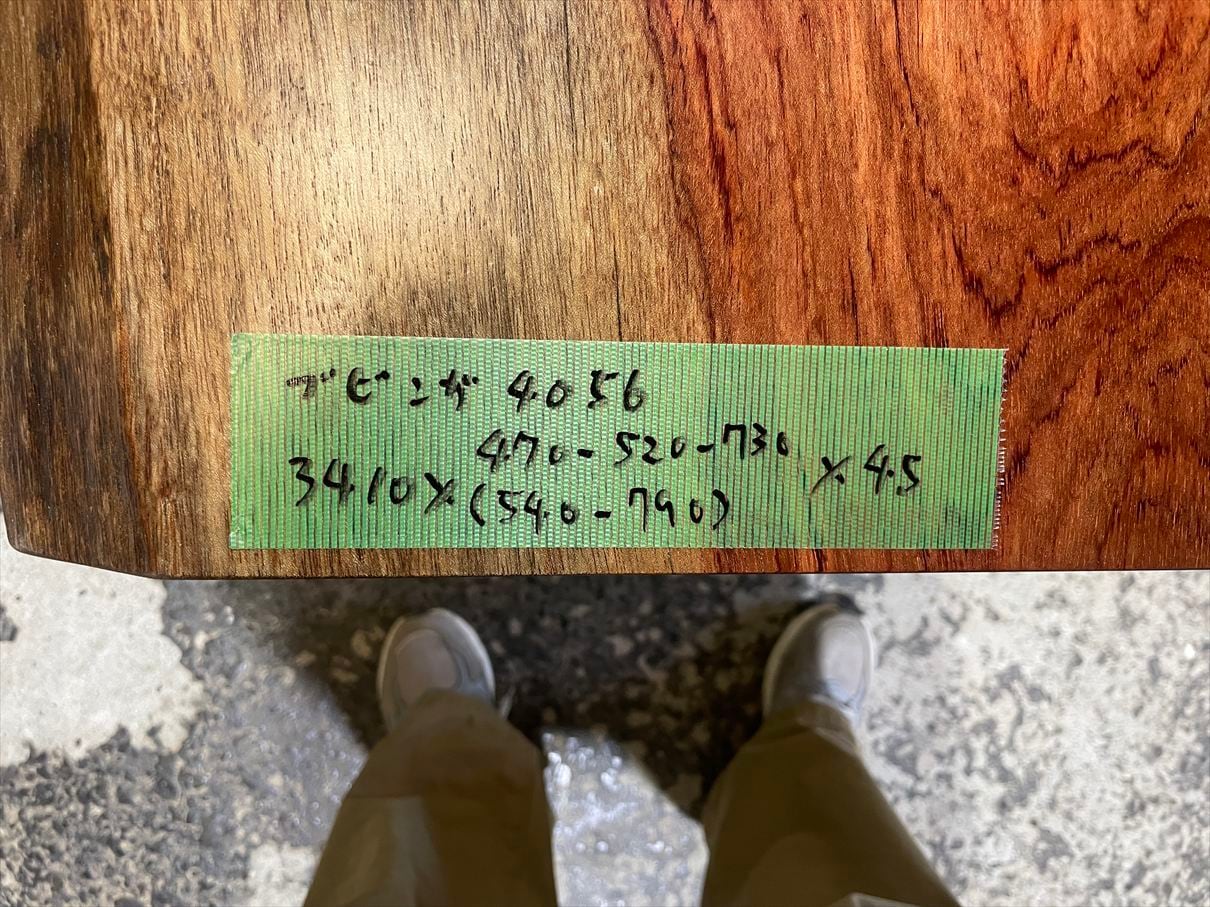 ブビンガ 4056
470-520-730
3410×(540-790)×4.5